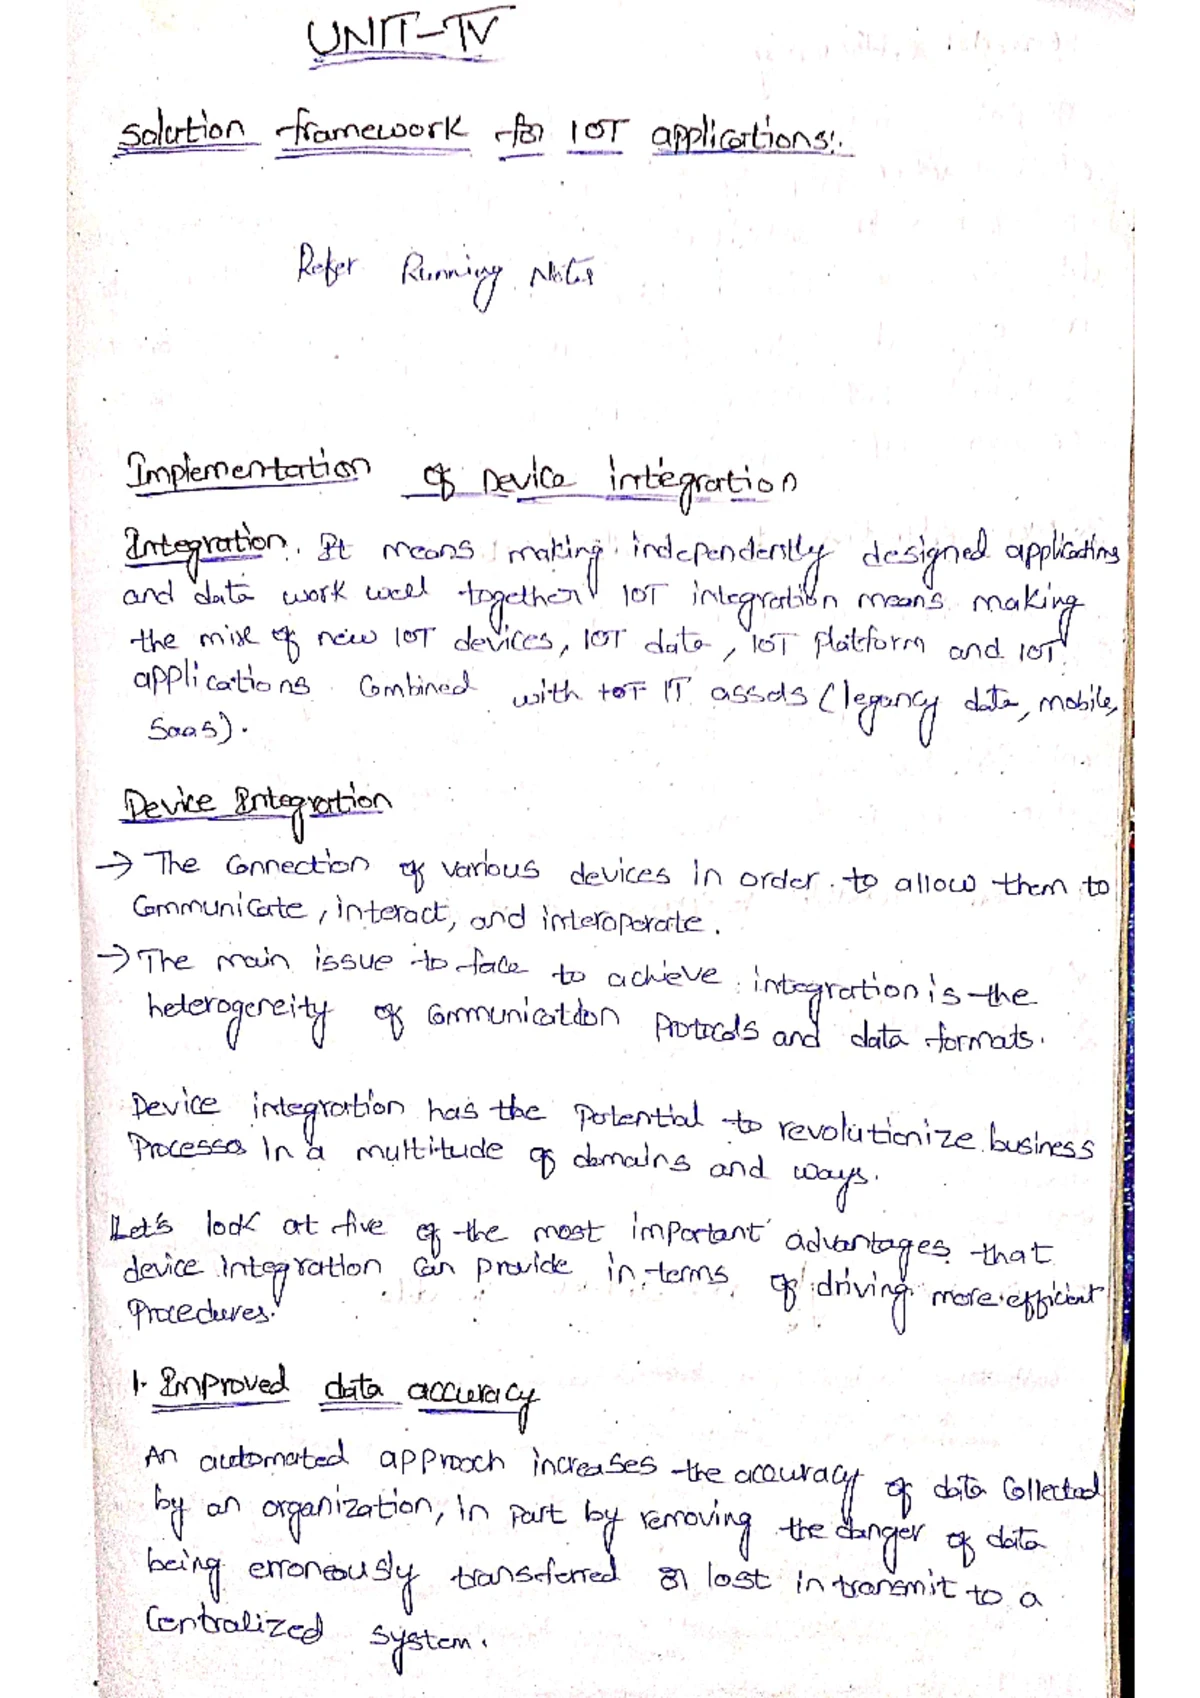 UNIT-IV
solution framework for IOT applications:
Refer Running Notes
Implementation of Device integration
Integration. It means making independently designed applications
and data work well together IOT integration means making
the mix of new IOT devices, IOT data, IOT Platform and IOT
applications combined with IOT IT assets (legancy data, mobile,
Saas).
Device Integration
→ The connection of various devices in order to allow them to
communicate, interact, and interoperate.
→ The main issue to face to achieve integration is the
heterogeneity of communication Protocols and data formats.
Device integration has the potential to revolutionize business
Processes in a multitude of domains and ways.
Let's look at five of the most important advantages that
device integration can provide in terms of driving more efficient
Procedures.
1. Improved data accuracy
An automated approach increases the accuracy of data collected
by an organization, in part by removing the danger of data
being erroneously transferred or lost in transmit to a
Centralized system.